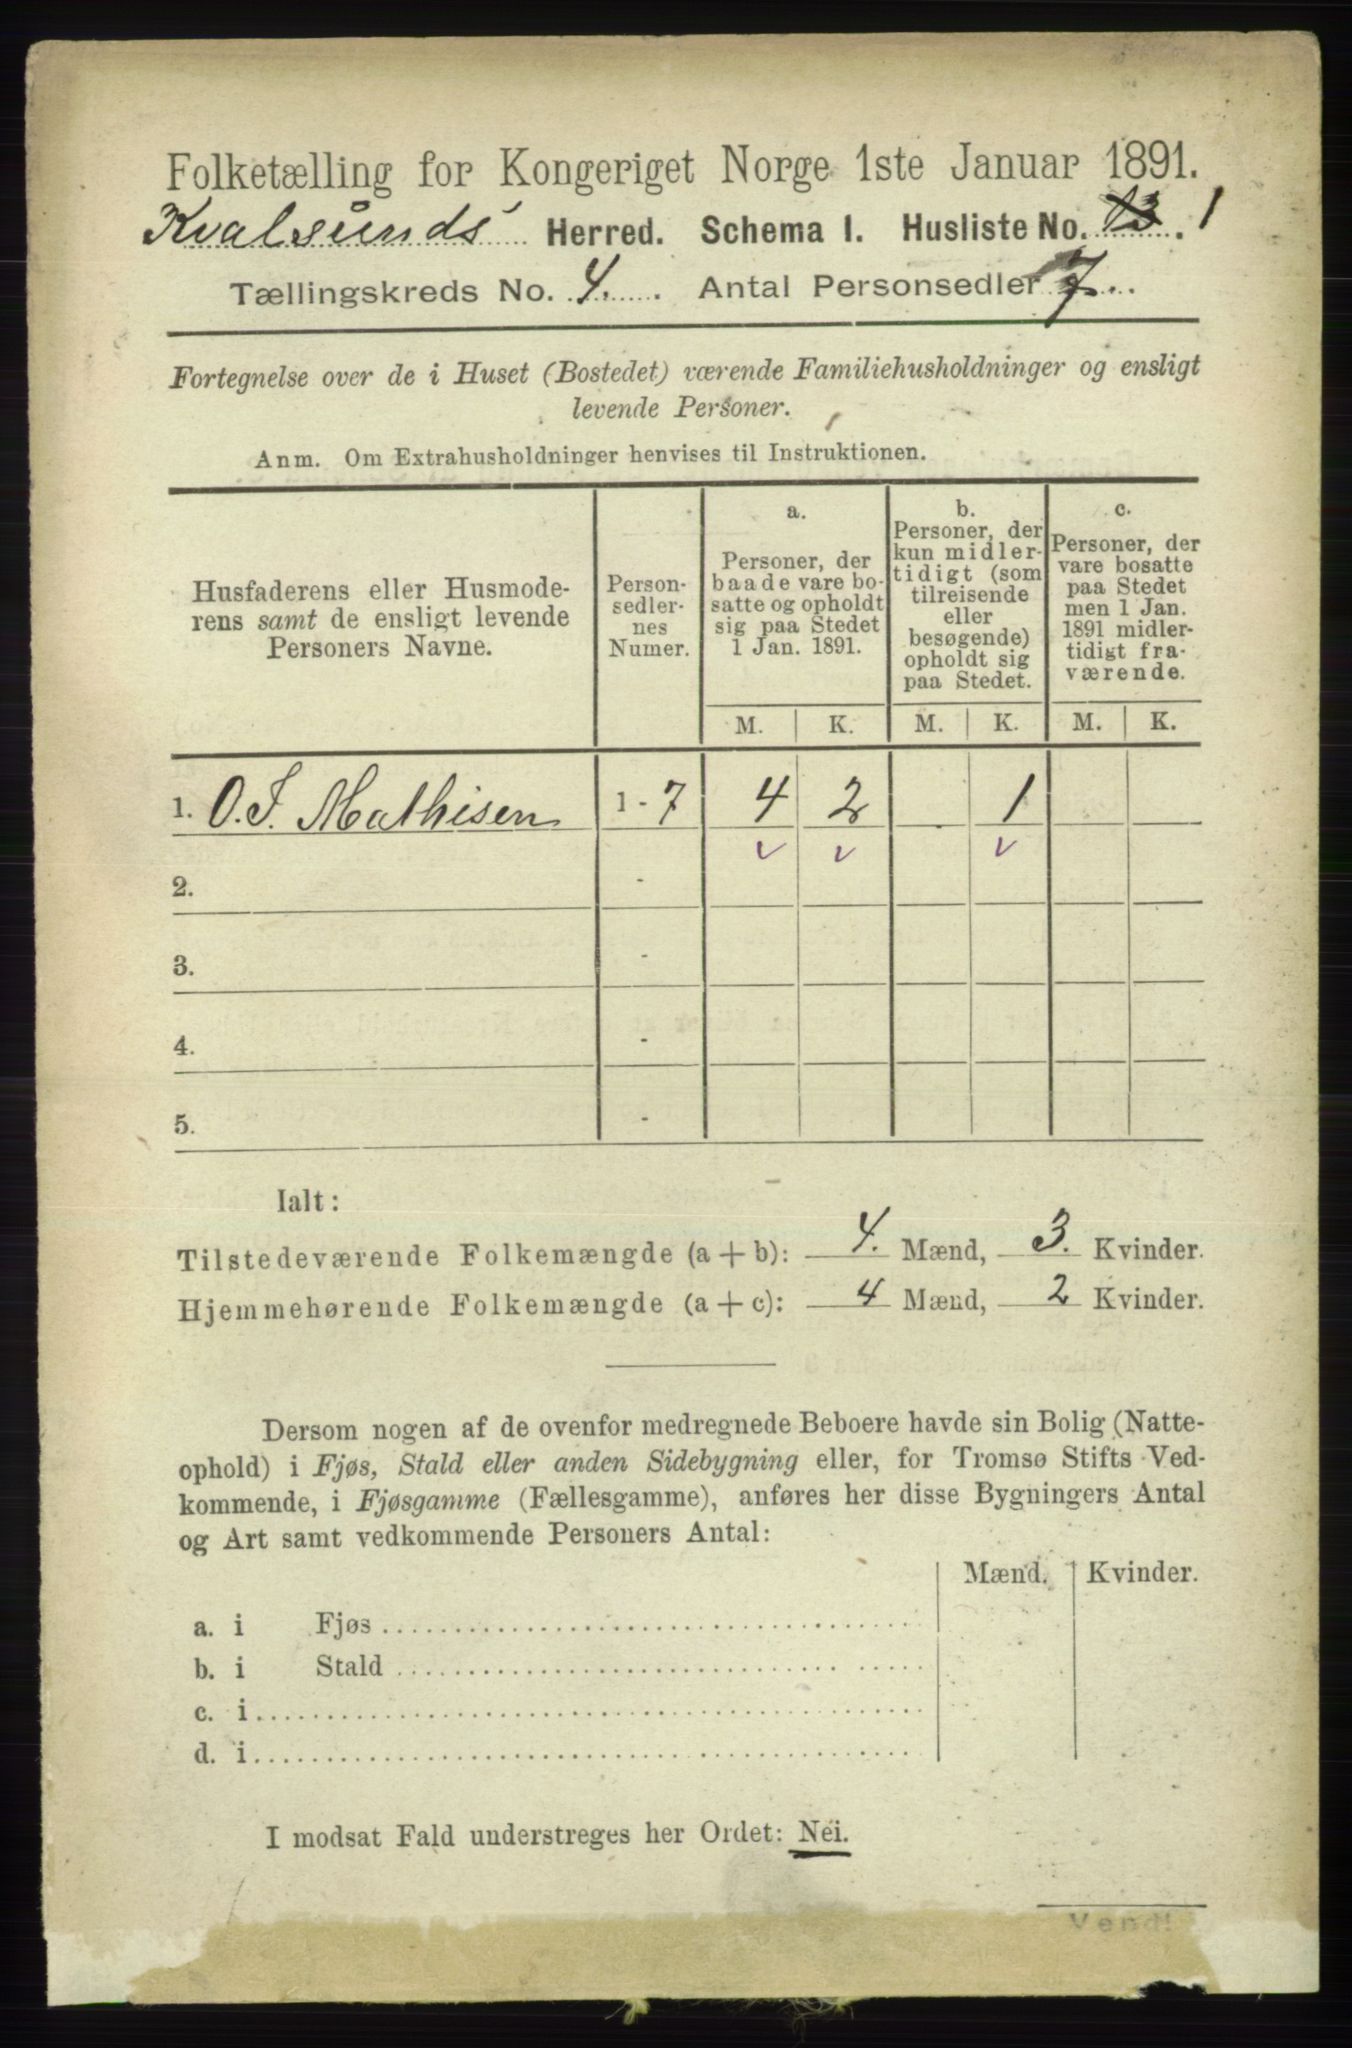 Folketælling for Kongeriget Norge 1ste Januar 1891.
Kvalsunds Herred. Schema I. Husliste No. 13. 1
Tællingskreds No. 4. Antal Personsedler 7.
Fortegnelse over de i Huset (Bostedet) værende Familiehusholdninger og ensligt
levende Personer.
Anm. Om Extrahusholdninger henvises til Instruktionen.
Husfaderens eller Husmode-
rens samt de ensligt levende
Personers Navne.
Person-
sedler-
nes
Numer.
a.
Personer, der
baade vare bo-
satte og opholdt
sig paa Stedet
1 Jan. 1891.
b.
Personer, der
kun midler-
tidigt (som
tilreisende
eller
besøgende)
opholdt sig
paa Stedet.
c.
Personer, der
vare bosatte
paa Stedet
men 1 Jan.
1891 midler-
tidigt fra-
værende.
M. K. M. K. M. K.
1. O. J. Mathisen 1 - 7 4 2 1
2. -
3. -
4. -
5. -
Ialt:
Tilstedeværende Folkemængde (a + b): 4. Mænd, 3. Kvinder.
Hjemmehørende Folkemængde (a + c): 4 Mænd, 2 Kvinder.
Dersom nogen af de ovenfor medregnede Beboere havde sin Bolig (Natte-
ophold) i Fjøs, Stald eller anden Sidebygning eller, for Tromsø Stifts Ved-
kommende, i Fjøsgamme (Fællesgamme), anføres her disse Bygningers Antal
og Art samt vedkommende Personers Antal:
Mænd. Kvinder.
a. i Fjøs
b. i Stald
c. i
d. i
I modsat Fald understreges her Ordet: Nei.
Vend!